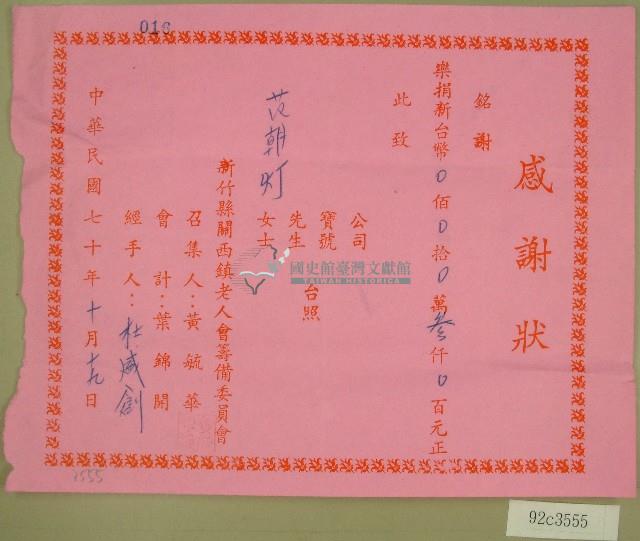 感謝狀
銘謝
樂捐新台幣0佰0拾0萬叁仟0百元正
此致
公司
寶號
先生
女士
台照
范朝灯
新竹縣關西鎮老人會籌備委員會
召集人：黃毓華
會計：葉錦開
經手人：杜盛創
中華民國七十年十月十九日
國史館臺灣文獻館
TAIWAN HISTORICA
3555
92c3555